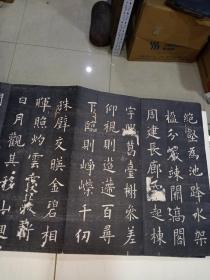 絶壑爲池跨水架
楹分巖竦闕高閣
周建長廊四起棟
宇膠葛臺榭參差
仰視則迢遰百尋
下臨則崢嶸千仞
珠壁交暎金碧相
暉照灼雲霞蔽虧
日月觀其移山迴